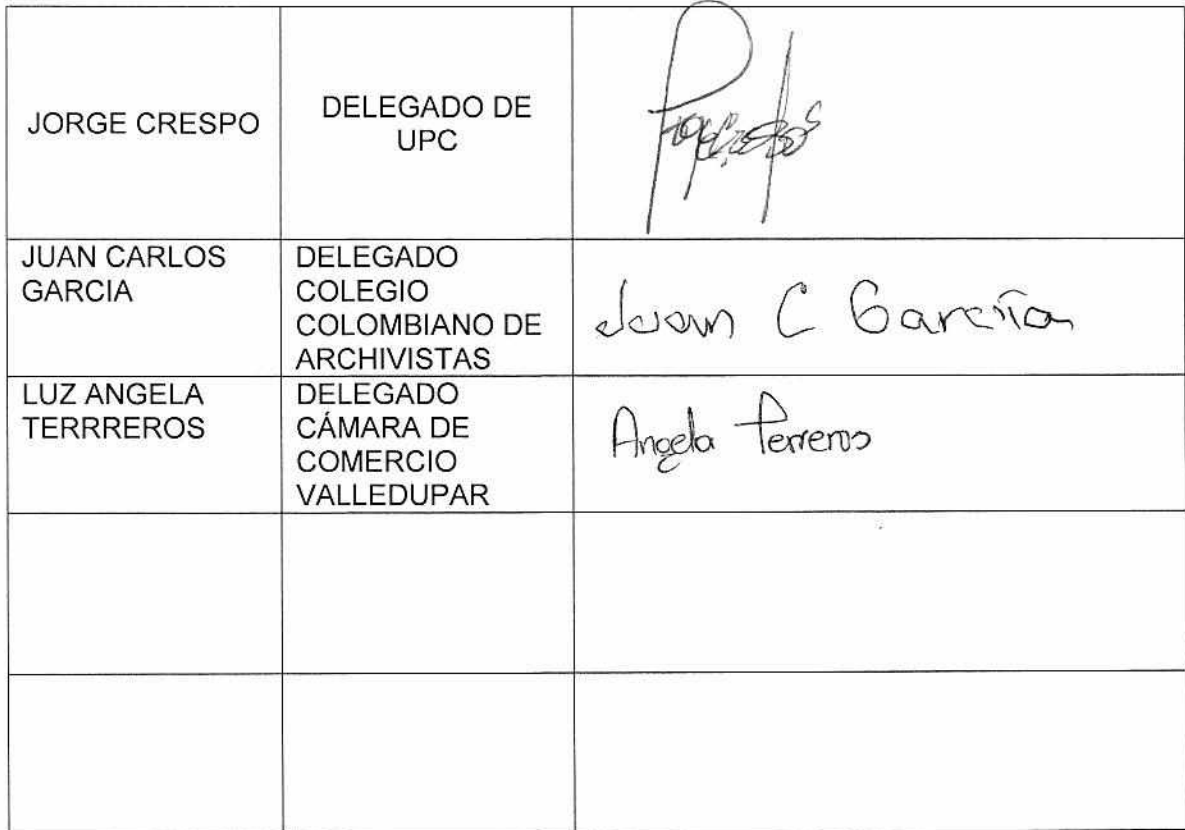 JORGE CRESPO
DELEGADO DE
UPC
JUAN CARLOS
GARCIA
DELEGADO
COLEGIO
COLOMBIANO DE
ARCHIVISTAS
Juan C García
LUZ ANGELA
TERRREROS
DELEGADO
CÁMARA DE
COMERCIO
VALLEDUPAR
Angela Terreros